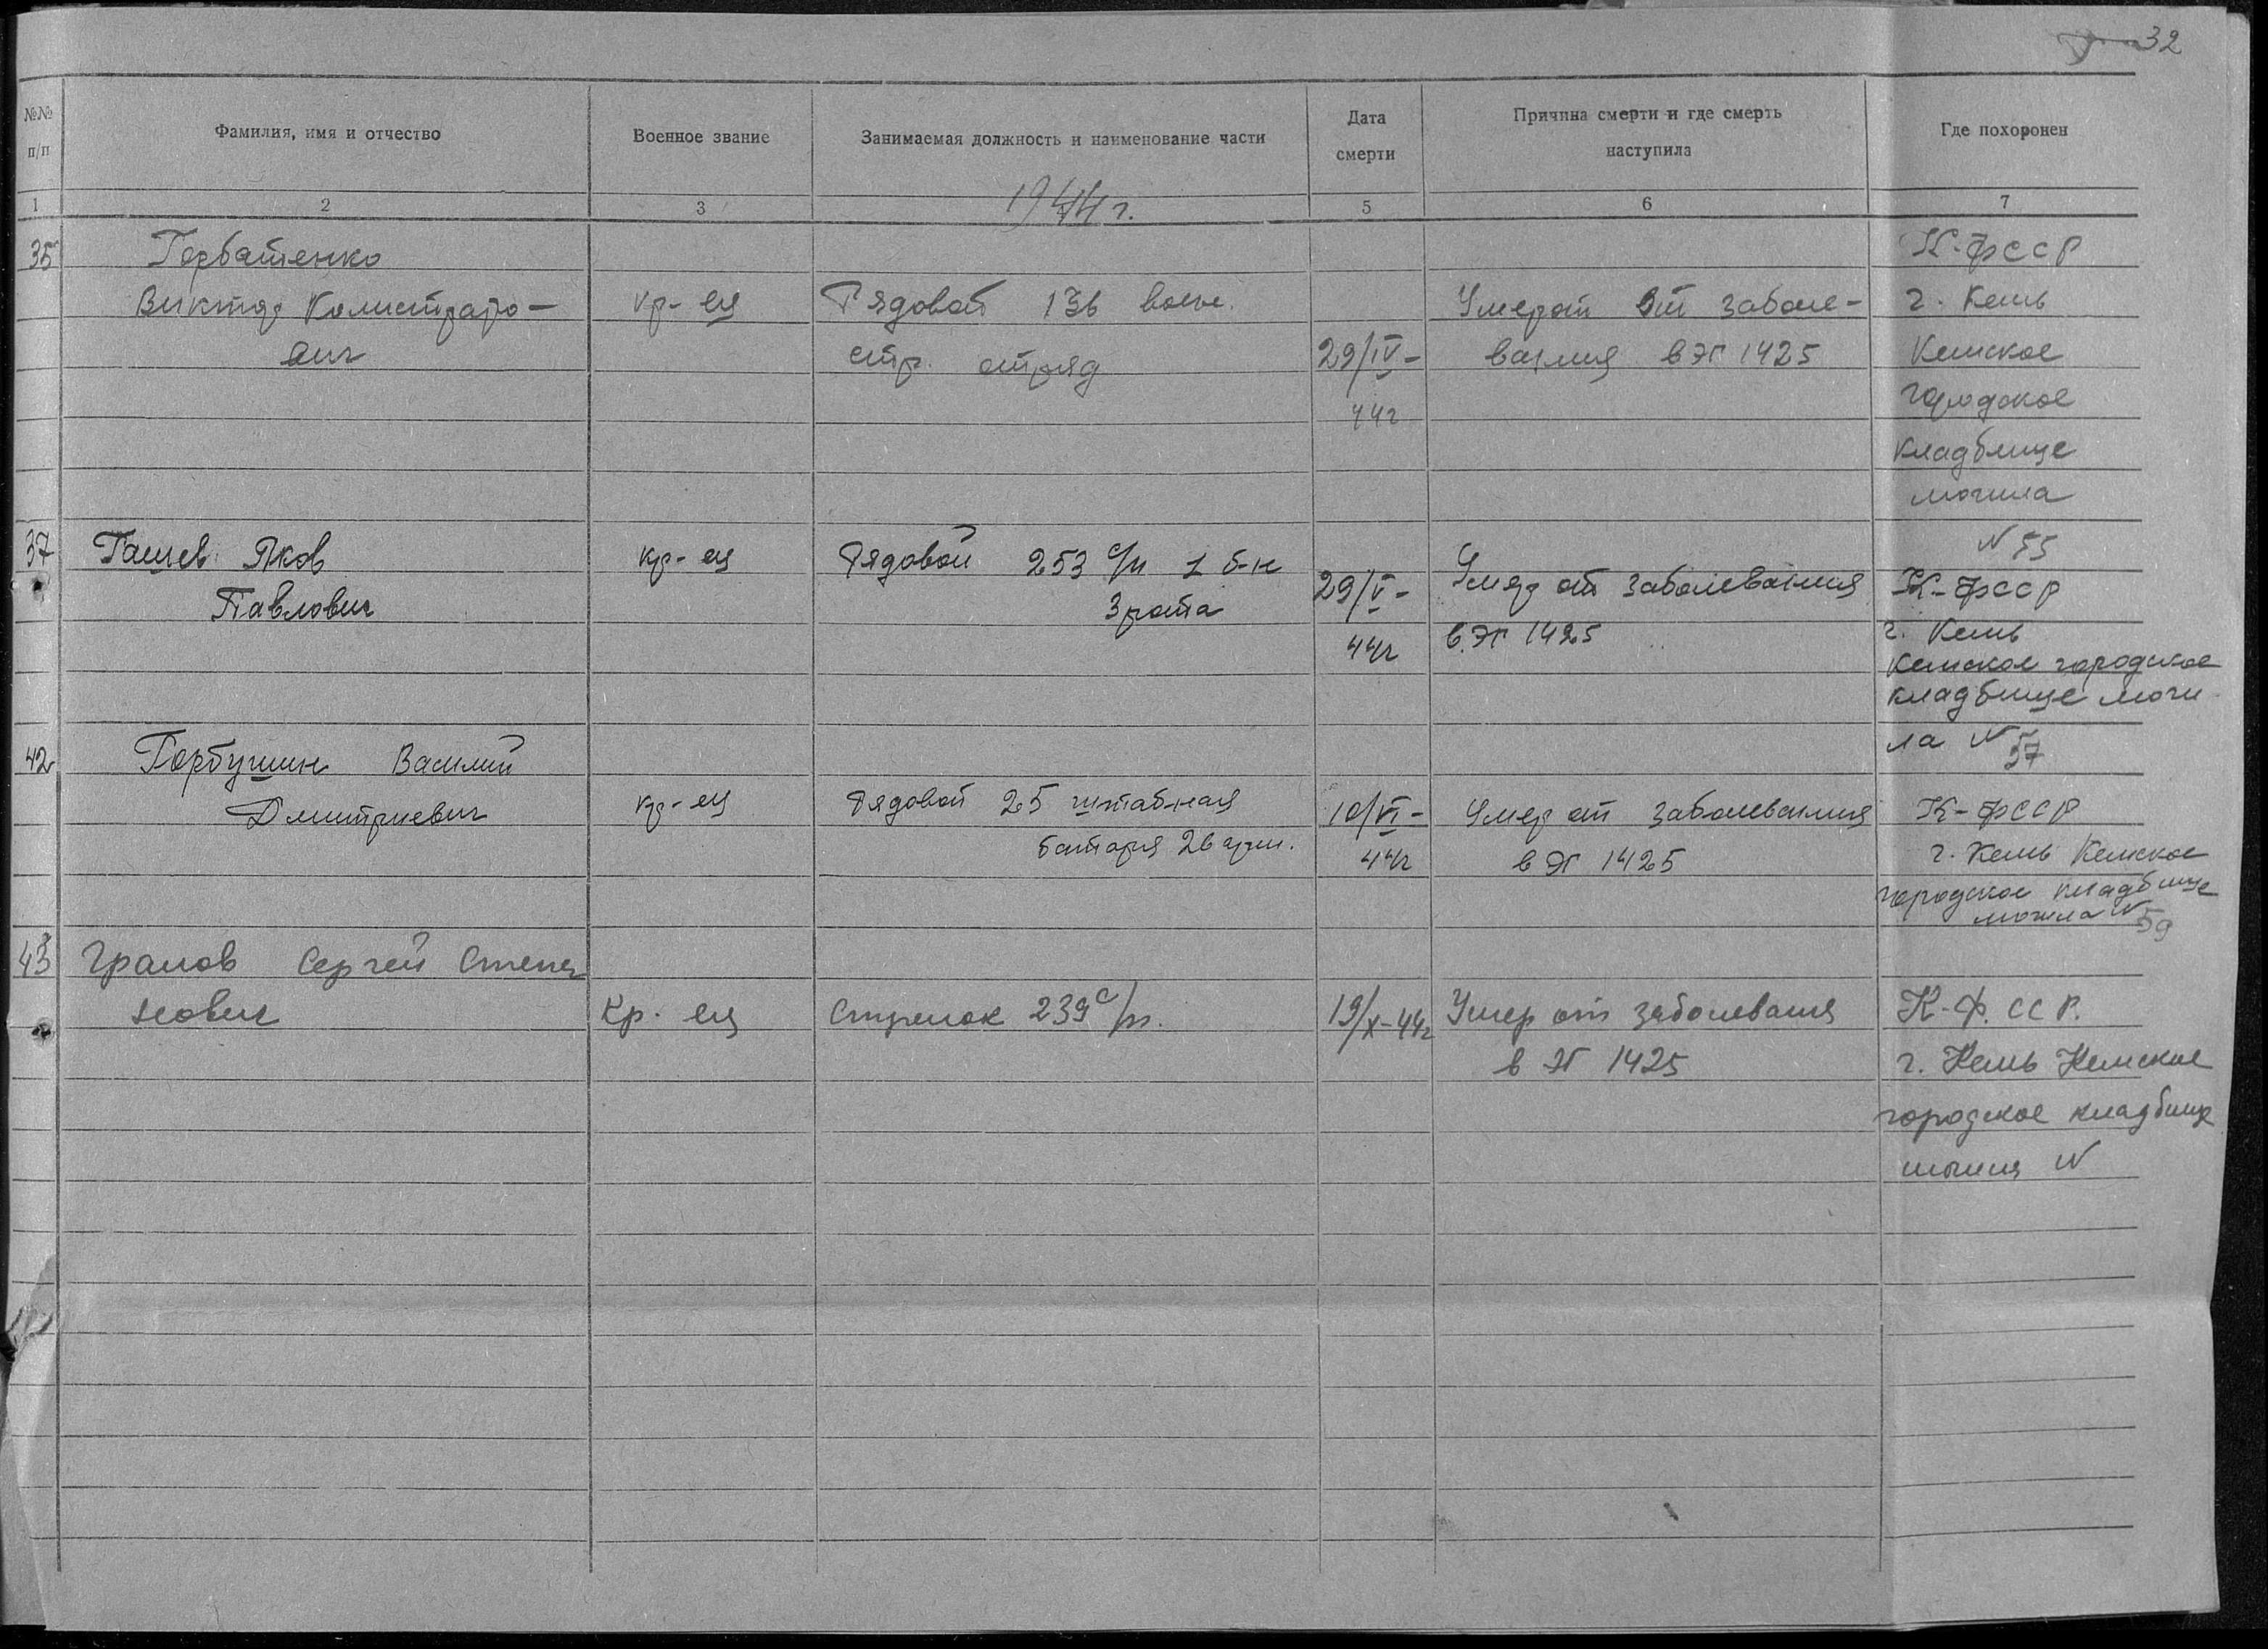 32
№№ п/п
Фамилия, имя и отчество
Военное звание
Занимаемая должность и наименование части
Дата смерти
Причина смерти и где смерть наступила
Где похоронен
1 2 3 1944 г. 5 6 7
35
Горбатенко
Виктор Калистрато-
вич
кр-ец
Рядовой 136 воен.
стр. отряд
29/IV-
44г
Умер от заболе-
вания в ЭГ 1425
К-ФССР
г. Кемь
Кемское
городское
кладбище
могила
N 55
37
Гашев Яков
Павлович
кр-ец
Рядовой 253 с/п 1 б-н
3 рота
29/V-
44г
Умер от заболевания
в ЭГ 1425
К-ФССР
г. Кемь
Кемское городское
кладбище моги
ла N 57
42
Горбушин Василий
Дмитриевич
кр-ец
Рядовой 25 штабная
батарея 26 арм.
10/VI-
44г
Умер от заболевания
в ЭГ 1425
К-ФССР
г. Кемь Кемское
городское кладбище
могила N 59
43
Грамов Сергей Степа
нович
Кр-ец
Стрелок 239 с/п.
19/X-44г
Умер от заболевания
в ЭГ 1425
К-Ф.ССР.
г. Кемь Кемское
городское кладбище
могила N